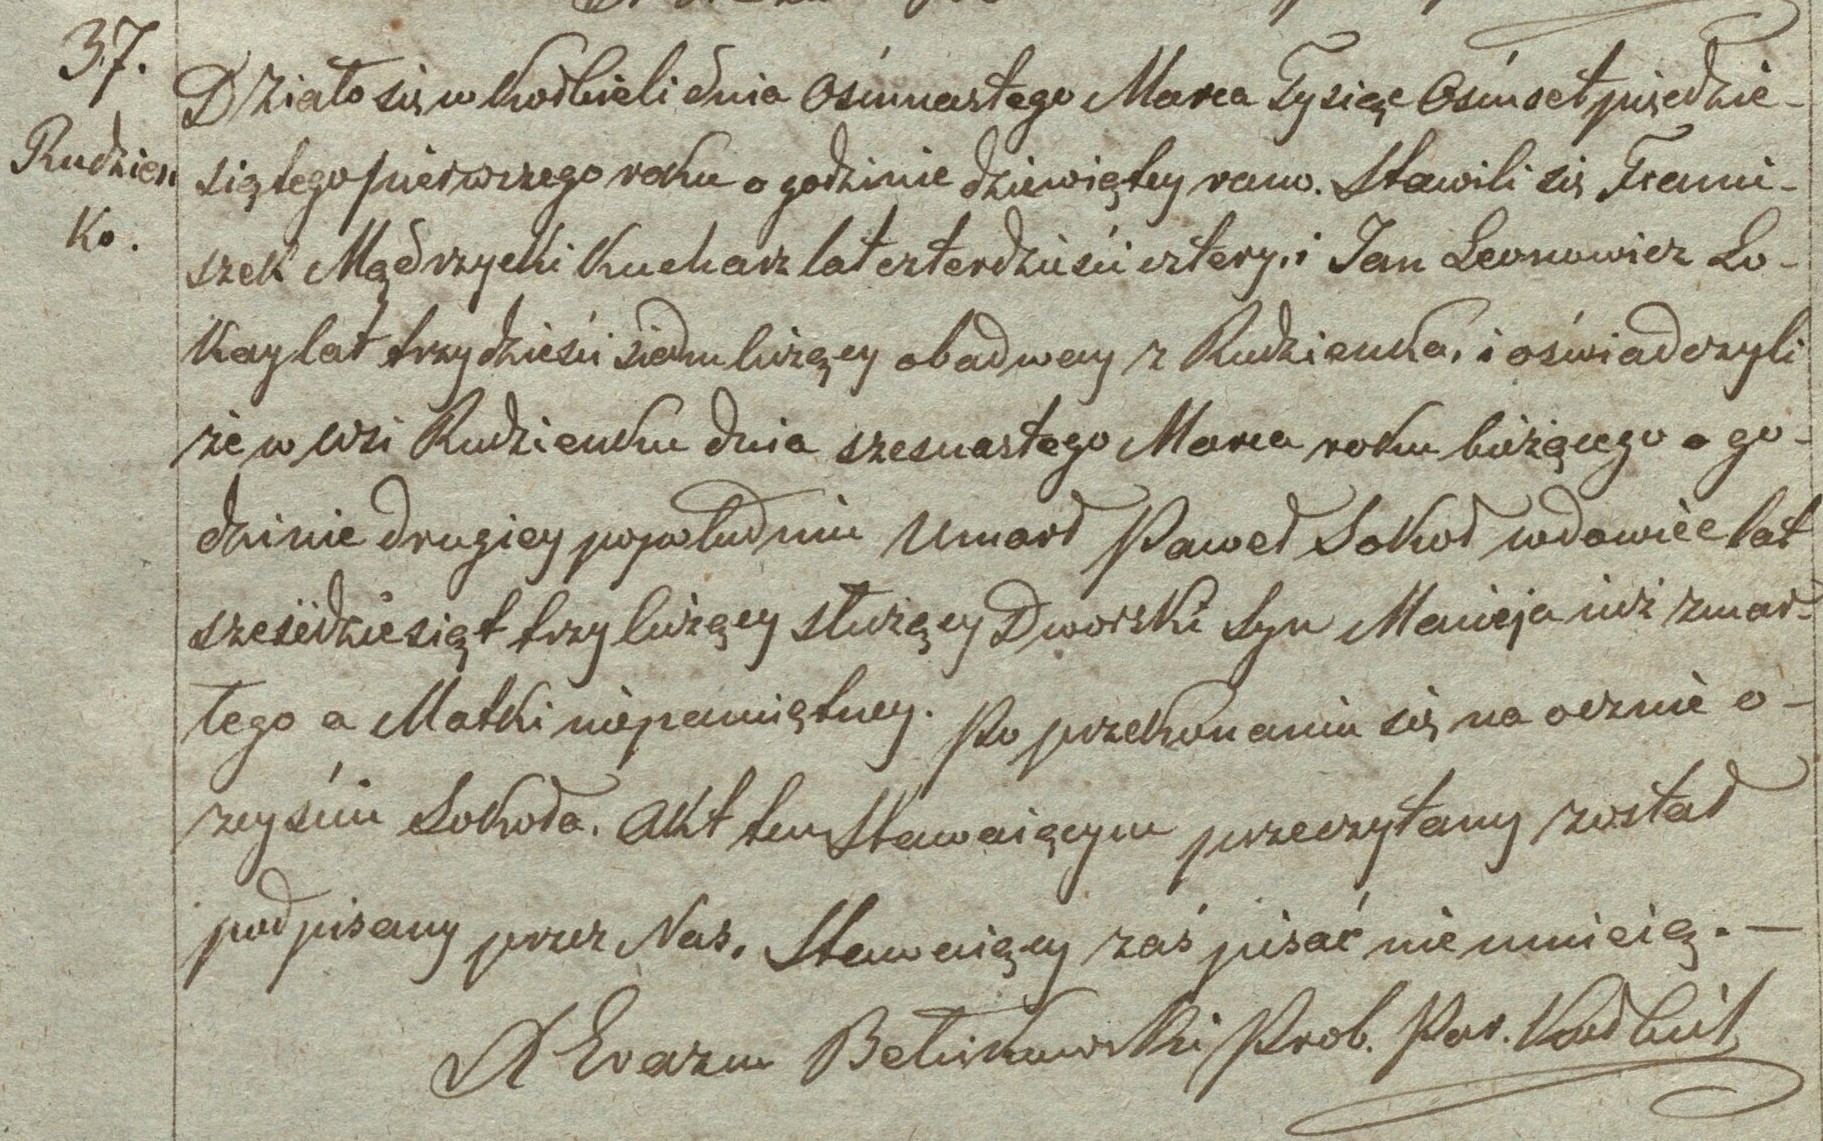 37.
Rudzien
ko.
Działo się w Kołbieli dnia Ośmnastego Marca Tysiąc Ośmset pięćdzie-
siątego pierwszego roku o godzinie dziewiątey rano. Stawili się Franci-
szek Mądrzycki Kucharz lat czterdzieści cztery, i Jan Leonowicz Lo-
kay lat trzydzieści siedm liczący obadway z Rudzienka, i oświadczyli
że w wsi Rudzienku dnia szesnastego Marca roku bieżącego o go-
dzinie drugiey popołudniu Umarł Paweł Sokoł wdowiec lat
sześćdziesiąt trzy liczący służący Dworski Syn Macieja już zmar-
łego a Matki niepamiętney. Po przekonaniu się na ocznie o
zeyściu Sokoła. Akt ten Stawaiącym przeczytany został
podpisany przez Nas. Stawaiący zaś pisać nie umieią. —
X Erazm Prob. Par. Kołbiel